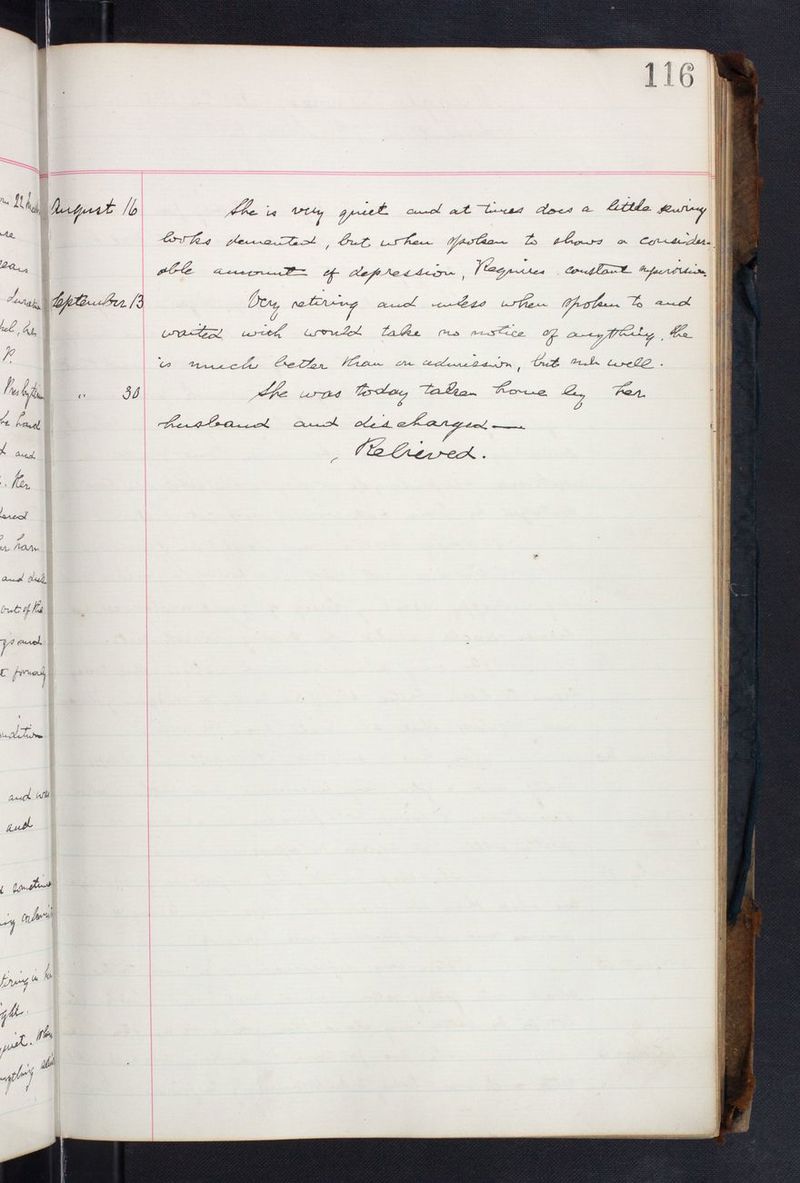 116
August 16 She is very quiet and at times does a little sewing
looks demented, but when spoken to shows a consider-
able amount of depression, Requires constant supervision.
September 13 Very retiring and unless when spoken to and
waited wich would take no notice of anything, She
is much better than on admission, but not well.
" 30 She was today taken home by her
husband and discharged —
Relieved.
and
and was
and